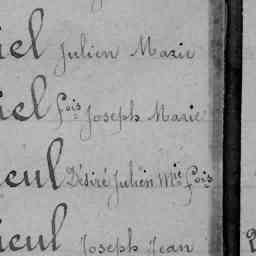 iel Julien Marie
iel fois Joseph Marie
cul Désiré Julien Mie fois
icul Joseph Jean